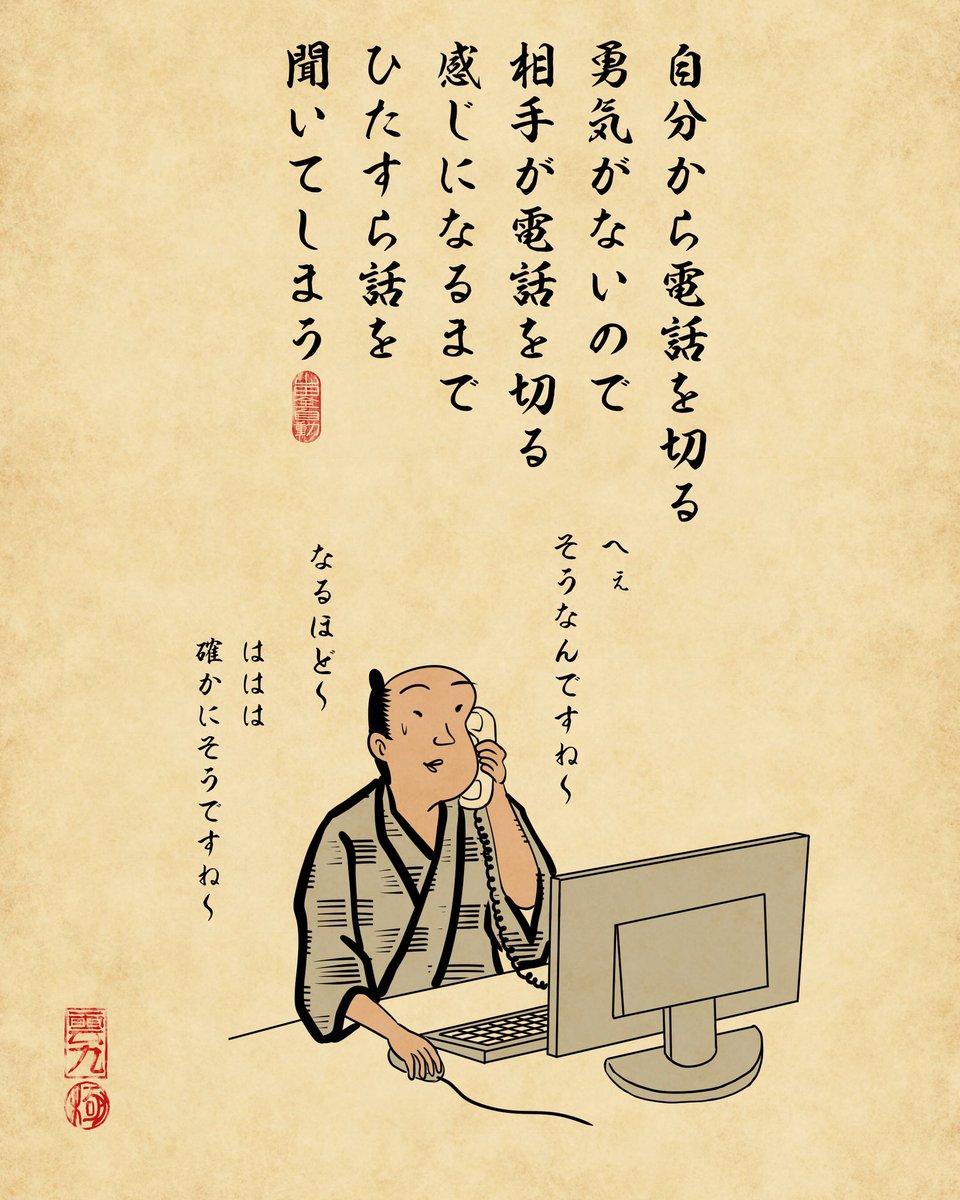 自分から電話を切る
勇気がないので
相手が電話を切る
感じになるまで
ひたすら話を
聞いてしまう
へぇ
そうなんですね〜
なるほど〜
ははは
確かにそうですね〜